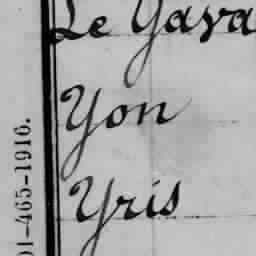 Le Gava
Yon
Yris
01-465-1916.